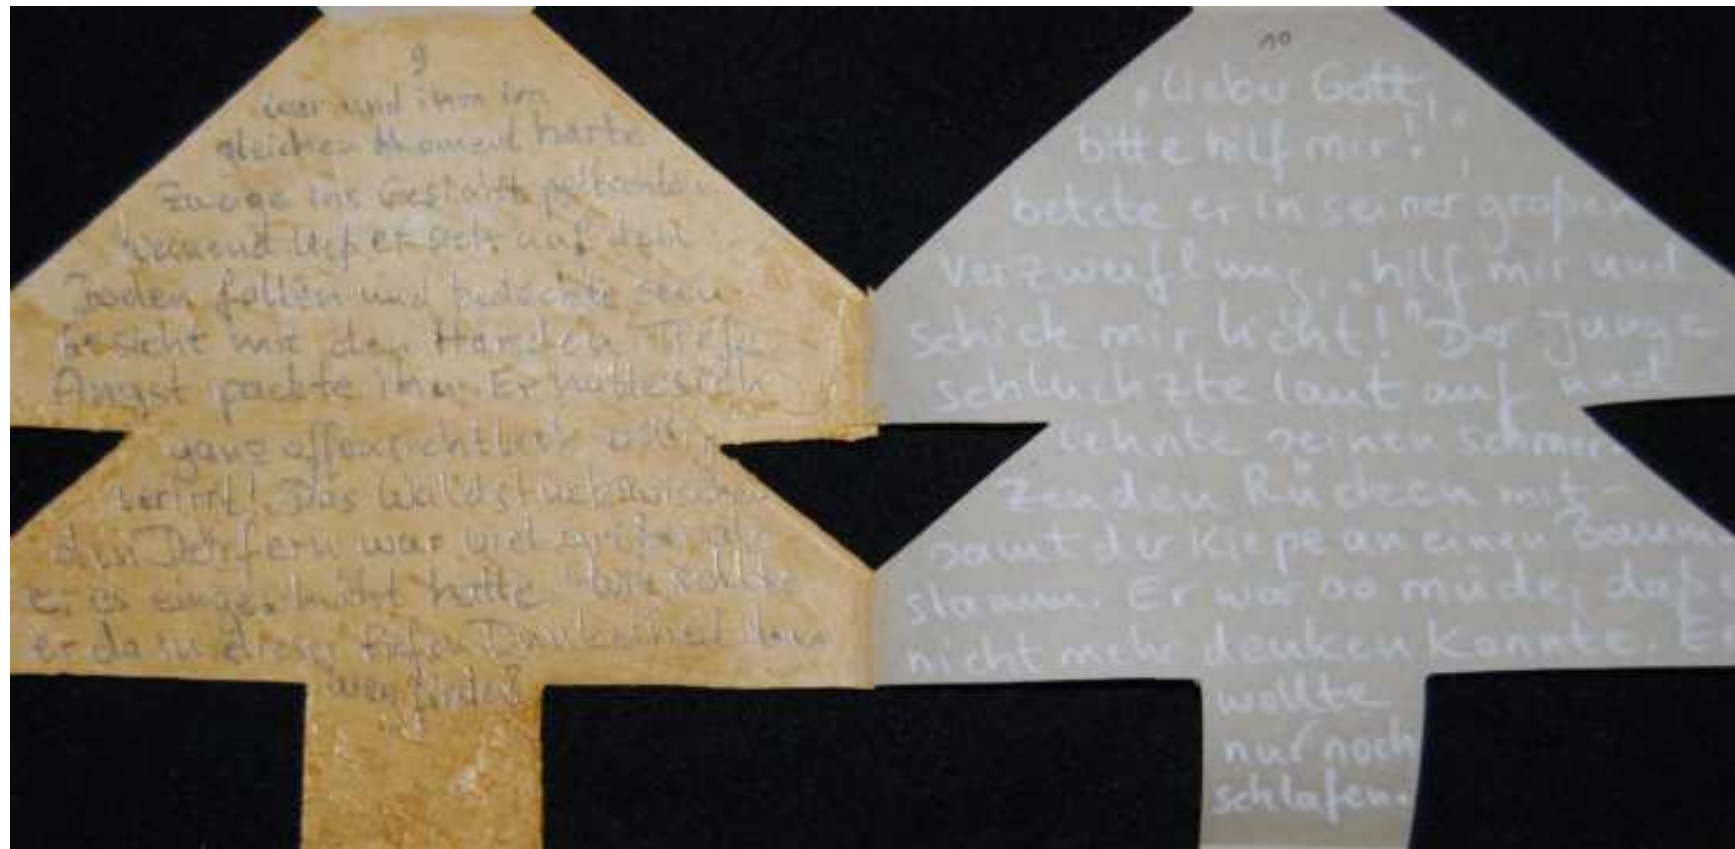 9
war und ihm im
gleichen Moment harte
Zweige ins Gesicht peitschten.
Weinend ließ er sich auf den
Boden fallen und bedeckte sein
Gesicht mit den Händen. Tiefe
Angst packte ihn. Er hatte sich
ganz offensichtlich völlig
verirrt! Das Waldstück zwischen
den Dörfern war viel größer als
er es eingeschätzt hatte. Wie sollte
er da in dieser tiefen Dunkelheit
weg finden?
10
"Lieber Gott,
bitte hilf mir!",
betete er in seiner großen
Verzweiflung, "hilf mir und
schick mir Licht!" Der Junge
schluchzte laut auf und
lehnte seinen schmer-
zenden Rücken mit-
samt der Kiepe an einen Baum
stamm. Er war so müde, daß
nicht mehr denken konnte. Er
wollte
nur noch
schlafen.